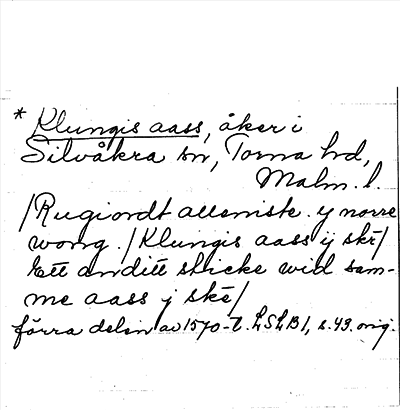 * Klungis aass, åker i
Silvåkra sn, Torna hd,
Malm. l.
/Rugiordt alleniste. y norre
wong. / Klungis aass ij skē/
Ett anditt sticke wid sam-
me aass j skē/
förra delen av 1570-t. LSLB1, s. 49. orig.